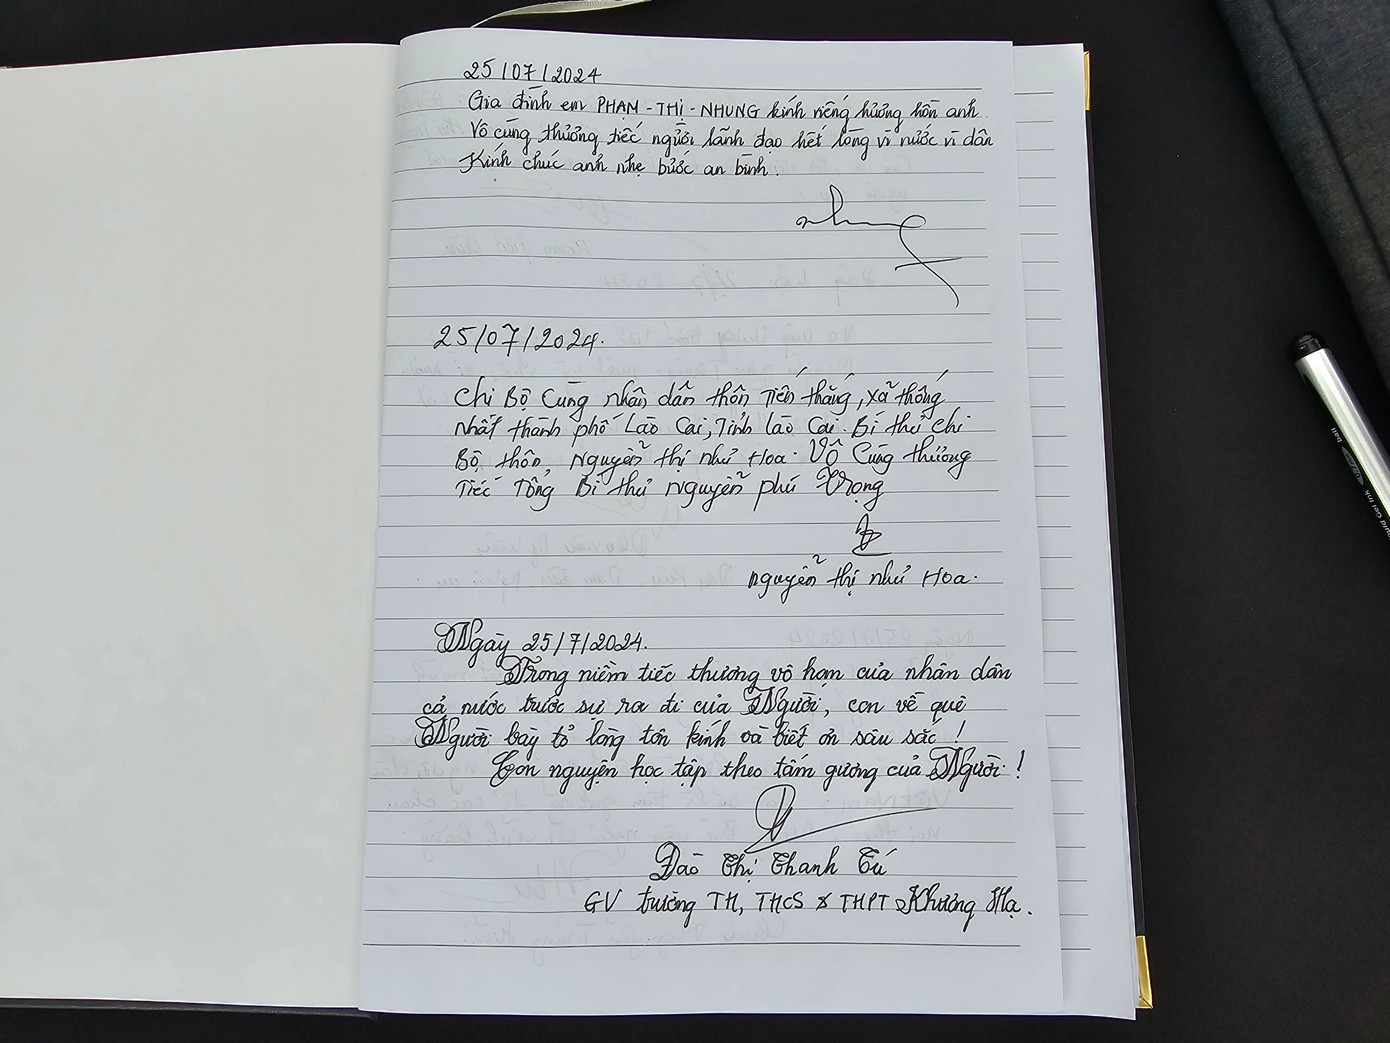 25/07/2024
Gia đình em PHẠM - THỊ - NHUNG kính viếng hương hồn anh.
Vô cùng thương tiếc người lãnh đạo hết lòng vì nước vì dân
Kính chúc anh nhẹ bước an bình.
nhung
25/07/2024.
Chi Bộ Cùng nhân dân thôn Tiến thắng, xã thống
nhất thành phố Lào Cai, Tỉnh Lào Cai. Bí thư chi
Bộ thôn, Nguyễn thị như Hoa. Vô Cùng thương
Tiếc Tổng Bí thư Nguyễn phú Trọng
Nguyễn thị như Hoa.
Ngày 25/7/2024.
Trong niềm tiếc thương vô hạn của nhân dân
cả nước trước sự ra đi của Người, con về quê
Người bày tỏ lòng tôn kính và biết ơn sâu sắc!
Con nguyện học tập theo tấm gương của Người!
Đào Thị Thanh Tú
GV trường TH, THCS & THPT Khương Hạ.
ball
Liquid Gel Ink